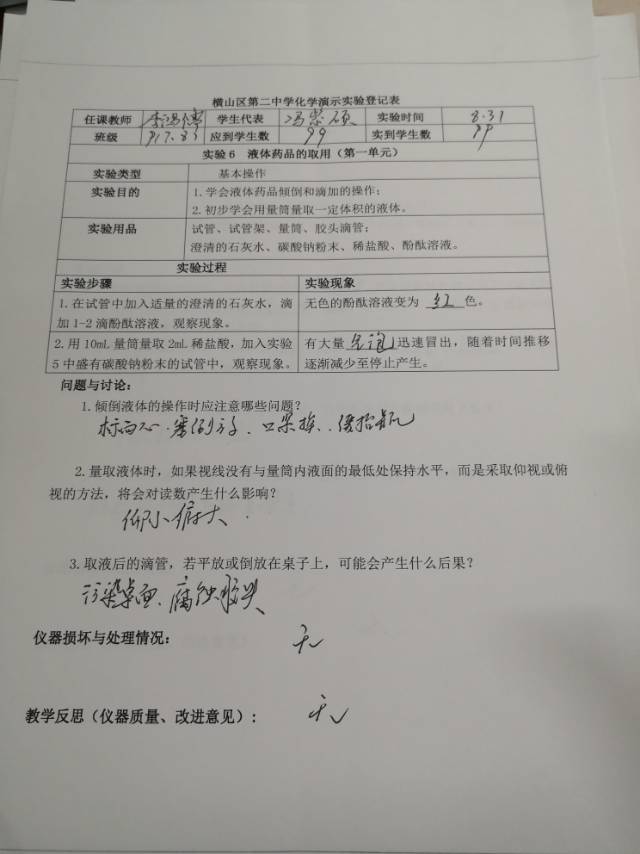 横山区第二中学化学演示实验登记表
任课教师 学生代表 冯 硕 实验时间 8.31
班级 917.83 应到学生数 99 实到学生数 99
实验6 液体药品的取用（第一单元）
实验类型 基本操作
实验目的 1.学会液体药品倾倒和滴加的操作；
2.初步学会用量筒量取一定体积的液体。
实验用品 试管、试管架、量筒、胶头滴管；
澄清的石灰水、碳酸钠粉末、稀盐酸、酚酞溶液。
实验过程
实验步骤 实验现象
1.在试管中加入适量的澄清的石灰水，滴 无色的酚酞溶液变为 红 色。
加1-2滴酚酞溶液，观察现象。
2.用10mL量筒量取2mL稀盐酸，加入实验 有大量 气泡 迅速冒出，随着时间推移
5中盛有碳酸钠粉末的试管中，观察现象。 逐渐减少至停止产生。
问题与讨论：
1.倾倒液体的操作时应注意哪些问题？
标向心.塞倒放.口紧挨.
2.量取液体时，如果视线没有与量筒内液面的最低处保持水平，而是采取仰视或俯
视的方法，将会对读数产生什么影响？
仰小俯大.
3.取液后的滴管，若平放或倒放在桌子上，可能会产生什么后果？
污染桌面、腐蚀胶头
仪器损坏与处理情况： 无
教学反思（仪器质量、改进意见）： 无